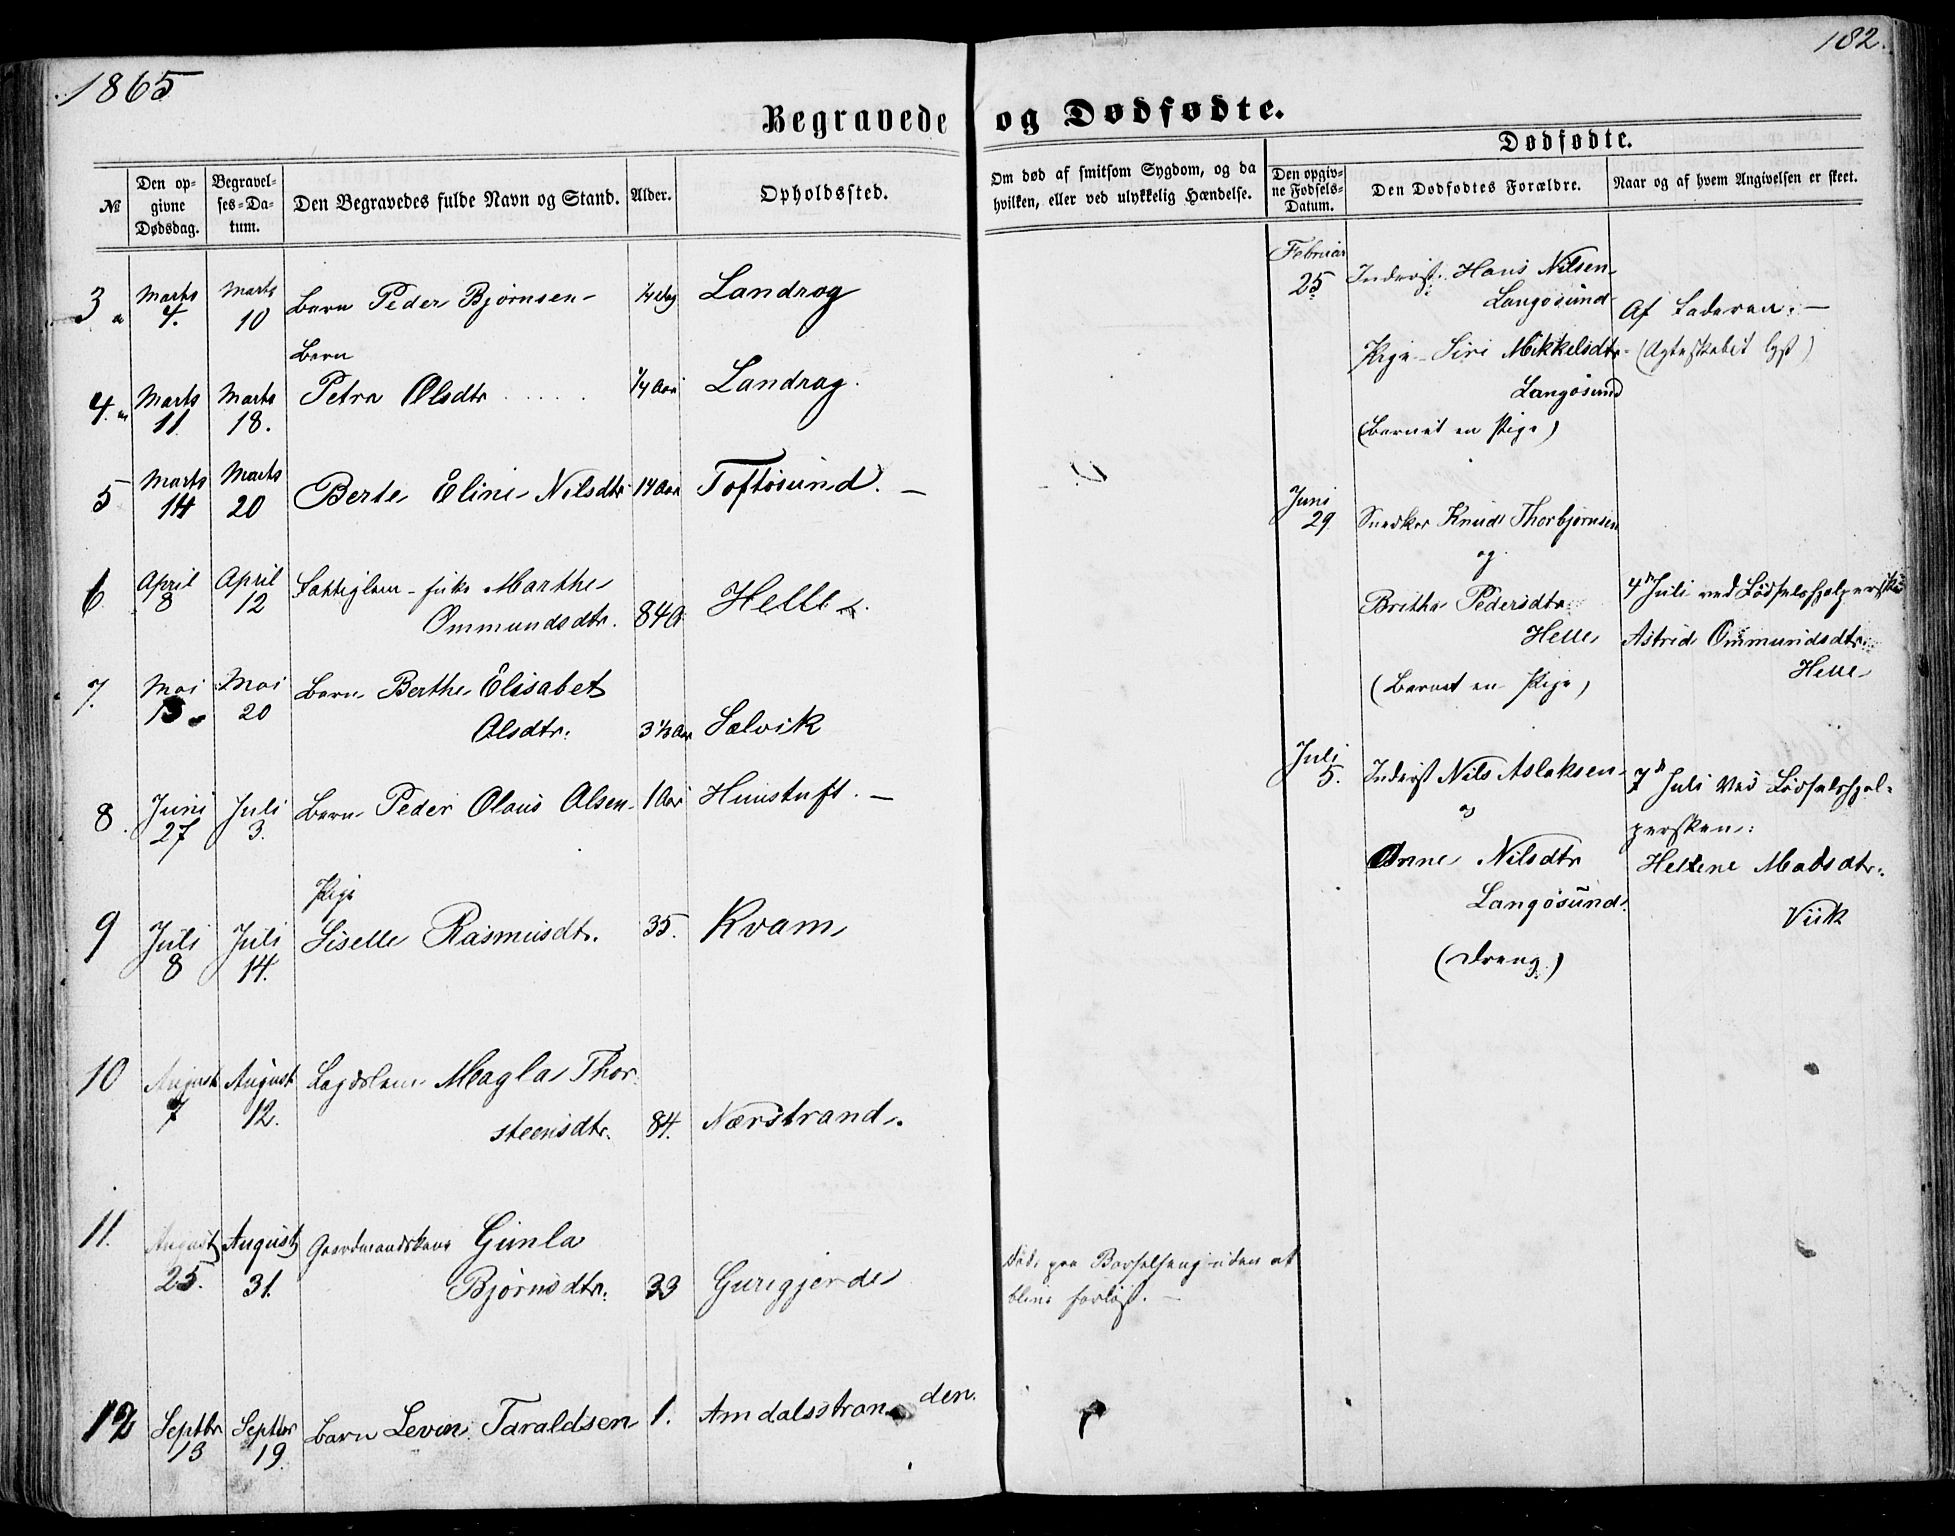 1865
182.
Begravede og Dødfødte.
Dødfødte.
№
Den op-
givne
Dødsdag.
Begravel-
ses-Da-
tum.
Den Begravedes fulde Navn og Stand.
Alder.
Opholdssted.
Om død af smitsom Sygdom, og da
hvilken, eller ved ulykkelig Hændelse.
Den opgiv-
ne Fødsels-
Datum.
Den Dødfødtes Forældre.
Naar og af hvem Angivelsen er skeet.
3 Marts 4. Marts 10 Barn Peder Bjørnsen Landrag
Barn
4 Marts 11 Marts 18. Petra Olsdtr 1/4 Aar Landrag.
5 Marts 14 Marts 20 Berte Eline Nilsdtr 14 Aar Toftøsund. —
6 April 8 April 12 Fattiglem Marthe
Ommundsdtr. 84 Helle.
7. Mai Mai 20 Barn Berthe Elisabet
Olsdtr. 3 1/3 Aar Sælvik
8. Juni 27 Juli 3. Barn Peder Olaus Olsen 1 Aar Huustuft. —
Pige
9 Juli 8 Juli 14. Siselle Rasmusdtr. 35. Kvam
10 August 7 August 12. Lægdslem Magla Thor-
steensdtr. 84. Nærstrand.
11. August 25. August 31. Gaardmandskone Gunla
Bjørnsdtr. 33 Gurigjerde
Død paa Barselseng uden at
blive forløst. —
12 Septbr 13 Septbr 19. Barn Levin Taraldsen 1. Amdalsstranden.
Februar
25 Inderst Hans Nilsen
Langøsund
Af Faderen. —
Pige Siri Mikkelsdtr. (Ægteskabet lyst)
Langøsund
(Barnet en Pige)
Juni
29 Snedker Knud Thorbjørnsen
og
Britha Pedersdtr.
Helle
(Barnet en Pige)
4de Juli ved Fødselshjelpersken
Astrid Ommundsdtr.
Helle
Juli
5. Inderst Nils Aslaksen
og
Anne Nilsdtr
Langøsund.
(Dreng.)
7de Juli ved Fødselshjel-
persken:
Hellene Madsdtr.
Viik